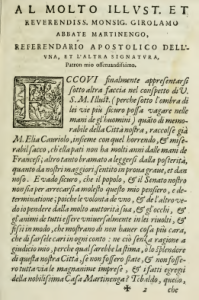 AL MOLTO ILLVST. ET
REVERENDISS. MONSIG. GIROLAMO
ABBATE MARTINENGO,
REFERENDARIO APOSTOLICO DELL'
VNA, ET L'ALTRA SIGNATVRA,
Patron mio osseruandissimo.
ECCOVI finalmente appresentarsi
sotto altra faccia nel conspetto di V.
S. M. Illust. (perche sotto l'ombra di
lei vie più sicuro possa vagare nelle
mani de gli huomini) quāto di memo-
rabile della Città nostra, raccolse già
M. Elia Cauriolo, insieme con quel horrendo, & mise-
rabil sacco, ch'ella patì non ha molti anni dalle man de
Francesi; altro tanto bramato a leggersi dalla posterità,
quanto da nostri maggiori sentito in proua graue, et dan
noso. E vado sicuro, che il popolo, & il Senato nostro
non sia per arrecarsi a molesto questo mio pensiero, e de-
terminatione, poiche le volontà de vno, & de l'altro ve-
do io pendere dalla molto auttorità sua, & gl'occhi, &
gli animi di tutti essere vniuersalmente in lei riuolti, &
fissi in modo, che mostrano di non hauer cosa più cara,
che di farsele cari in ogni conto: ne ciò senza ragione a
giudicio mio, perche qual sarebbe la stima, o lo splendore
di questa nostra Città, se non fossero state, & non fosse-
ro tutta via le magnanime imprese, & i fatti egregi
della nobilissima Casa Martinenga? Tibaldo, quello,
2 che